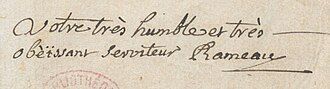 Votre très humble et très
obëissant serviteur Rameau